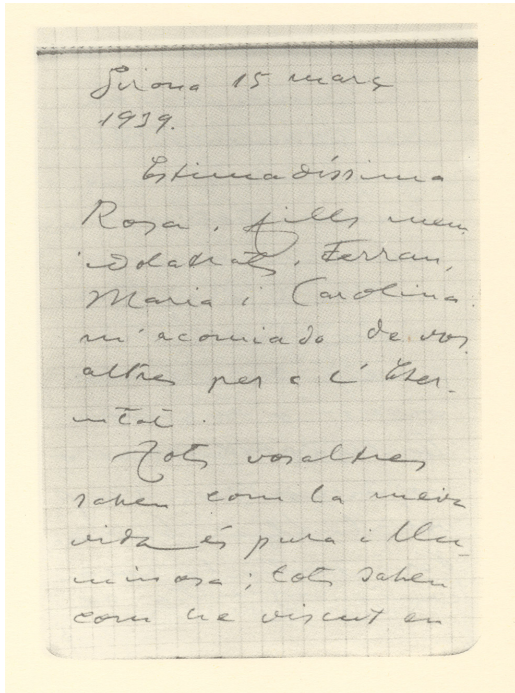 Girona 15 març
1939.
Estimadíssima
Rosa, fills meus
idolatrats, Ferran,
Maria i Carolina:
m'acomiado de vos
altres per a l'Eter-
nitat.
Tots vosaltres
saben com la meva
vida és pura i llu-
minosa; tots saben
com he viscut en